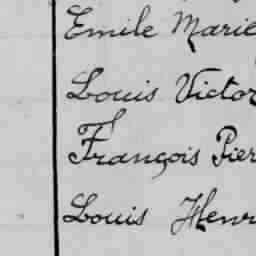 Emile Marie
Louis Victor
François Pier
Louis Henr